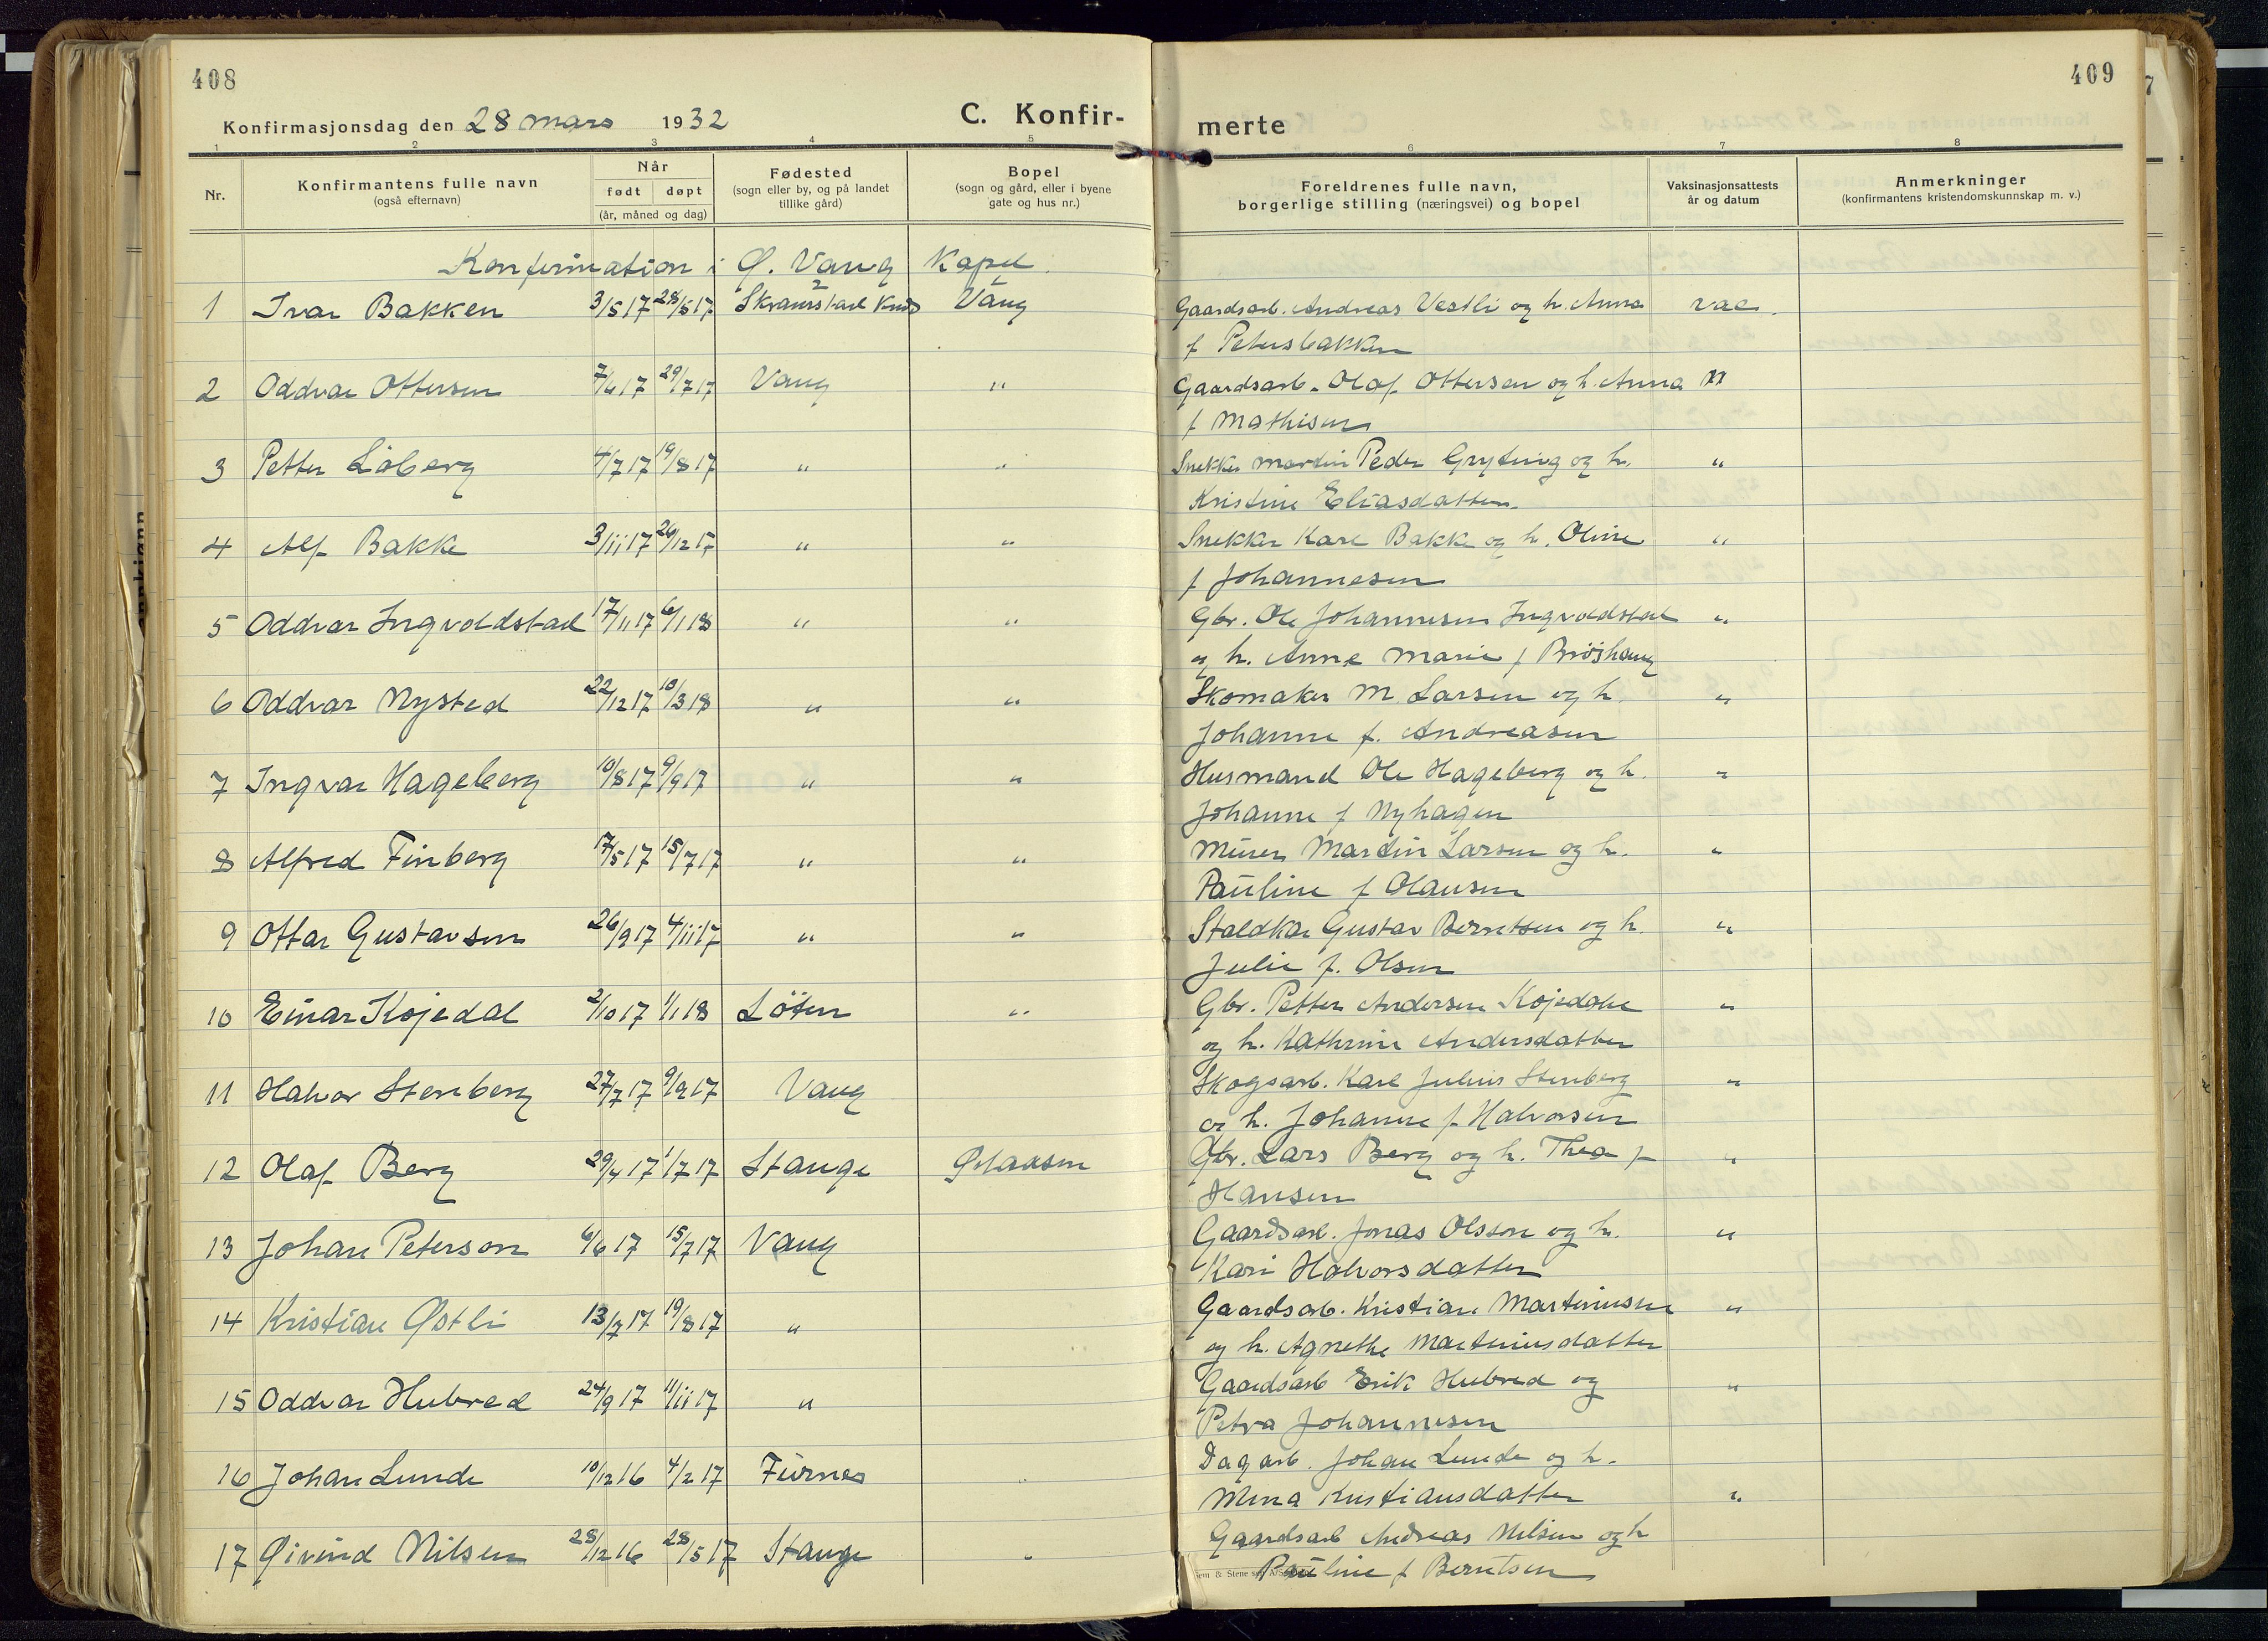 408
409
Konfirmasjonsdag den 28 mars 1932
C. Konfir-
merte
1 2 3 4 5 6 7 8
Nr.
Konfirmantens fulle navn
(også efternavn)
Når
født døpt
(år, måned og dag)
Fødested
(sogn eller by, og på landet
tillike gård)
Bopel
(sogn og gård, eller i byene
gate og hus nr.)
Foreldrenes fulle navn,
borgerlige stilling (næringsvei) og bopel
Vaksinasjonsattests
år og datum
Anmerkninger
(konfirmantens kristendomskunnskap m. v.)
Konfirmation i Ø. Vang Kapel
1 Ivar Bakken 3/5 17 28/5 17 Vang Gaardsarb. Andreas Vestli og h. Anna vac.
f Petersbakken
2 Oddvar Ottersen 7/6 17 29/7 17 Vang " Gaardsarb. Olaf Ottersen og h. Anna "
f Mathisen
3 Petter Løberg 4/7 17 19/8 17 " " Snekker Martin Peder Gryting og h. "
Kristine Eliasdatter
4 Alf Bakke 3/11 17 26/12 17 " " Snekker Karl Bakke og h. Oline "
f Johannesen
5 Oddvar Ingvoldstad 17/11 17 6/1 18 " " Gbr. Ole Johannesen Ingvoldstad "
og h. Anne Marie f
6 Oddvar Nysted 22/12 17 10/3 18 " " Skomaker M. Larsen og h. "
Johanne f. Andreasen
7 Ingvar Hageberg 10/8 17 9/9 17 " " Husmand Ole Hageberg og h. "
Johanne f Nyhagen
8 Alfred Finberg 17/5 17 15/7 17 " " Murer Martin Larsen og h. "
Pauline f Olausen
9 Ottar Gustavsen 26/9 17 4/11 17 " " Staldkar Gustav Berntsen og h. "
Julie f. Olsen
10 Einar Kojedal 2/10 17 1/1 18 Løten " Gbr. Petter Andersen Kojedal "
og h. Kathrine Andersdatter
11 Halvor Stenberg 27/7 17 9/9 17 Vang Skogsarb. Karl Julius Stenberg "
og h. Johanne f. Halvorsen
12 Olaf Berg 29/4 17 1/7 17 Stange Gbr. Lars Berg og h. Thea f "
Hansen
13 Johan Peterson 6/6 17 15/7 17 Vang Gaardsarb. Jonas Olsson og h. "
Kari Halvorsdatter
14 Kristian Østli 13/7 17 19/8 17 " Gaardsarb. Kristian Martinussen "
og h. Agnethe Martinusdatter
15 Oddvar Hubred 24/9 17 11/11 17 " Gaardsarb Erik Hubred og "
Petra Johannesen
16 Johan Lunde 10/12 16 4/2 17 Furnes Dagarb. Johan Lunde og h.
Mina Kristiansdatter "
17 Øivind Nilsen 28/12 16 28/5 17 Stange " Gaardsarb Andreas Nilsen og h
Pauline f Berntsen